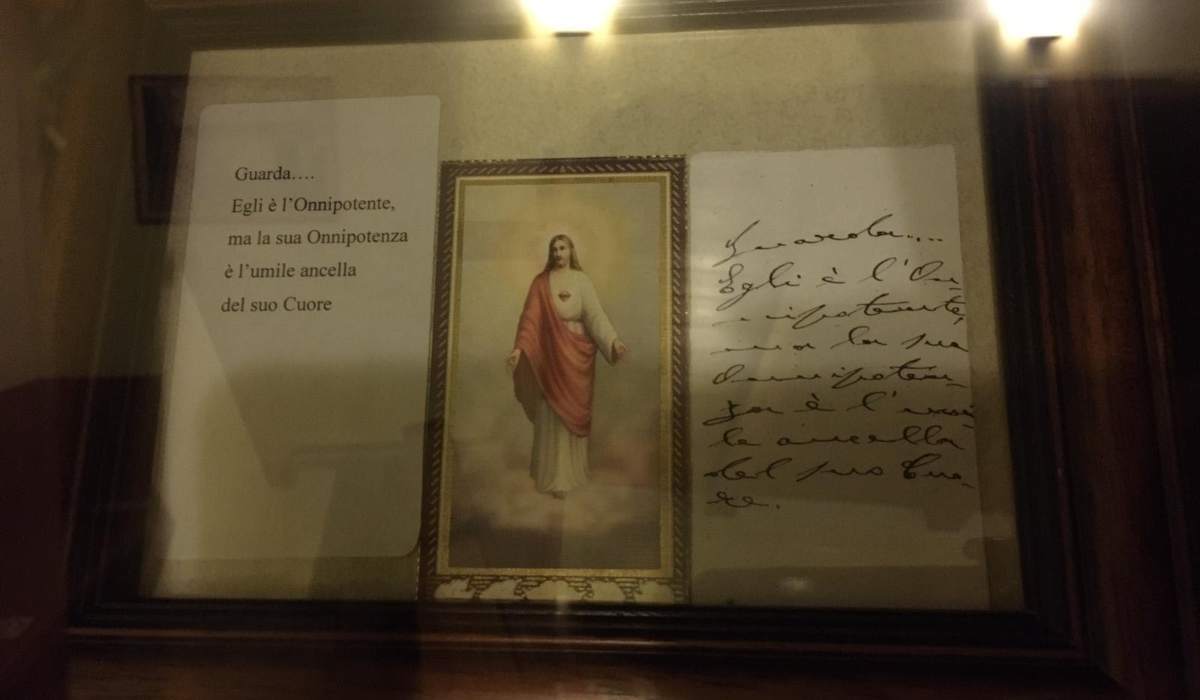 Guarda....
Egli è l'Onnipotente,
ma la sua Onnipotenza
è l'umile ancella
del suo Cuore
Guarda....
Egli è l'On-
nipotente,
ma la sua
Onnipoten-
za è l'umi-
le ancella
del suo Cuo-
re.